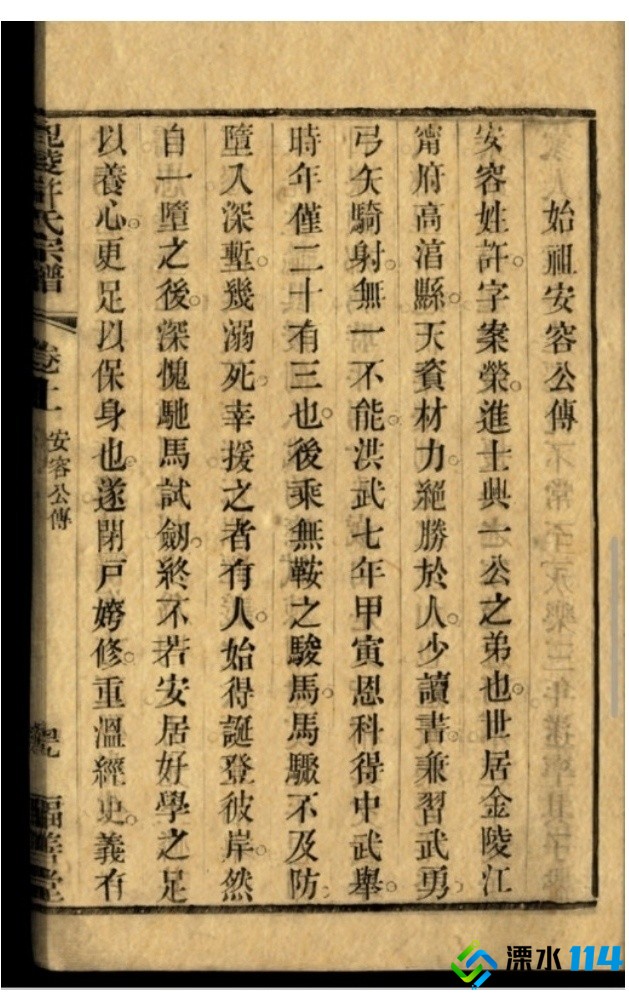 始祖安容公傳
安容姓許。字案榮。進士興一公之弟也。世居金陵江
甯府高淯縣。天資材力。絕勝於人。少讀書。兼習武勇。
弓矢騎射。無一不能。洪武七年甲寅恩科得中武舉。
時年僅二十有三也。後乘無鞍之駿馬。馬驟不及防
墮入深塹。幾溺死。幸援之者有人。始得誕登彼岸。然
自一墮之後。深愧馳馬試劒。終不若安居好學之足
以養心。更足以保身也。遂閉戸姱修。重溫經史。義有
毘陵許氏宗譜
卷十一
安容公傳
福善堂
溧水114